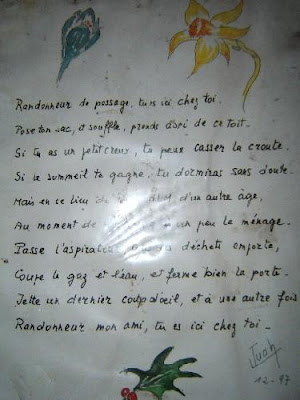 Randonneur de passage, tu es ici chez toi.
Pose ton sac, et souffle, prends abri de ce toit.
Si tu as un petit creux, tu peux casser la croute.
Si le sommeil te gagne, tu dormiras sans doute.
Mais en ce lieu de d'un autre âge,
Au moment de un peu le ménage.
Passe l'aspirateur, déchets emporte,
Coupe le gaz et l'eau, et ferme bien la porte.
Jette un dernier coup d'oeil, et à une autre fois
Randonneur mon ami, tu es ici chez toi.
Juan
12-97